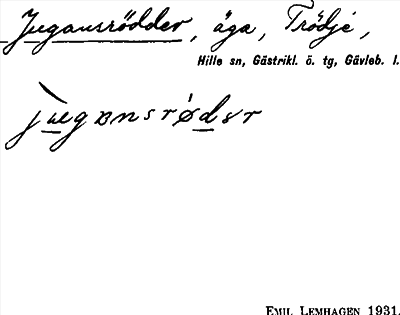 Jugansrödder, äga, Trödje,
Hille sn, Gästrikl. ö. tg, Gävleb. l.
EMIL LEMHAGEN 1931.